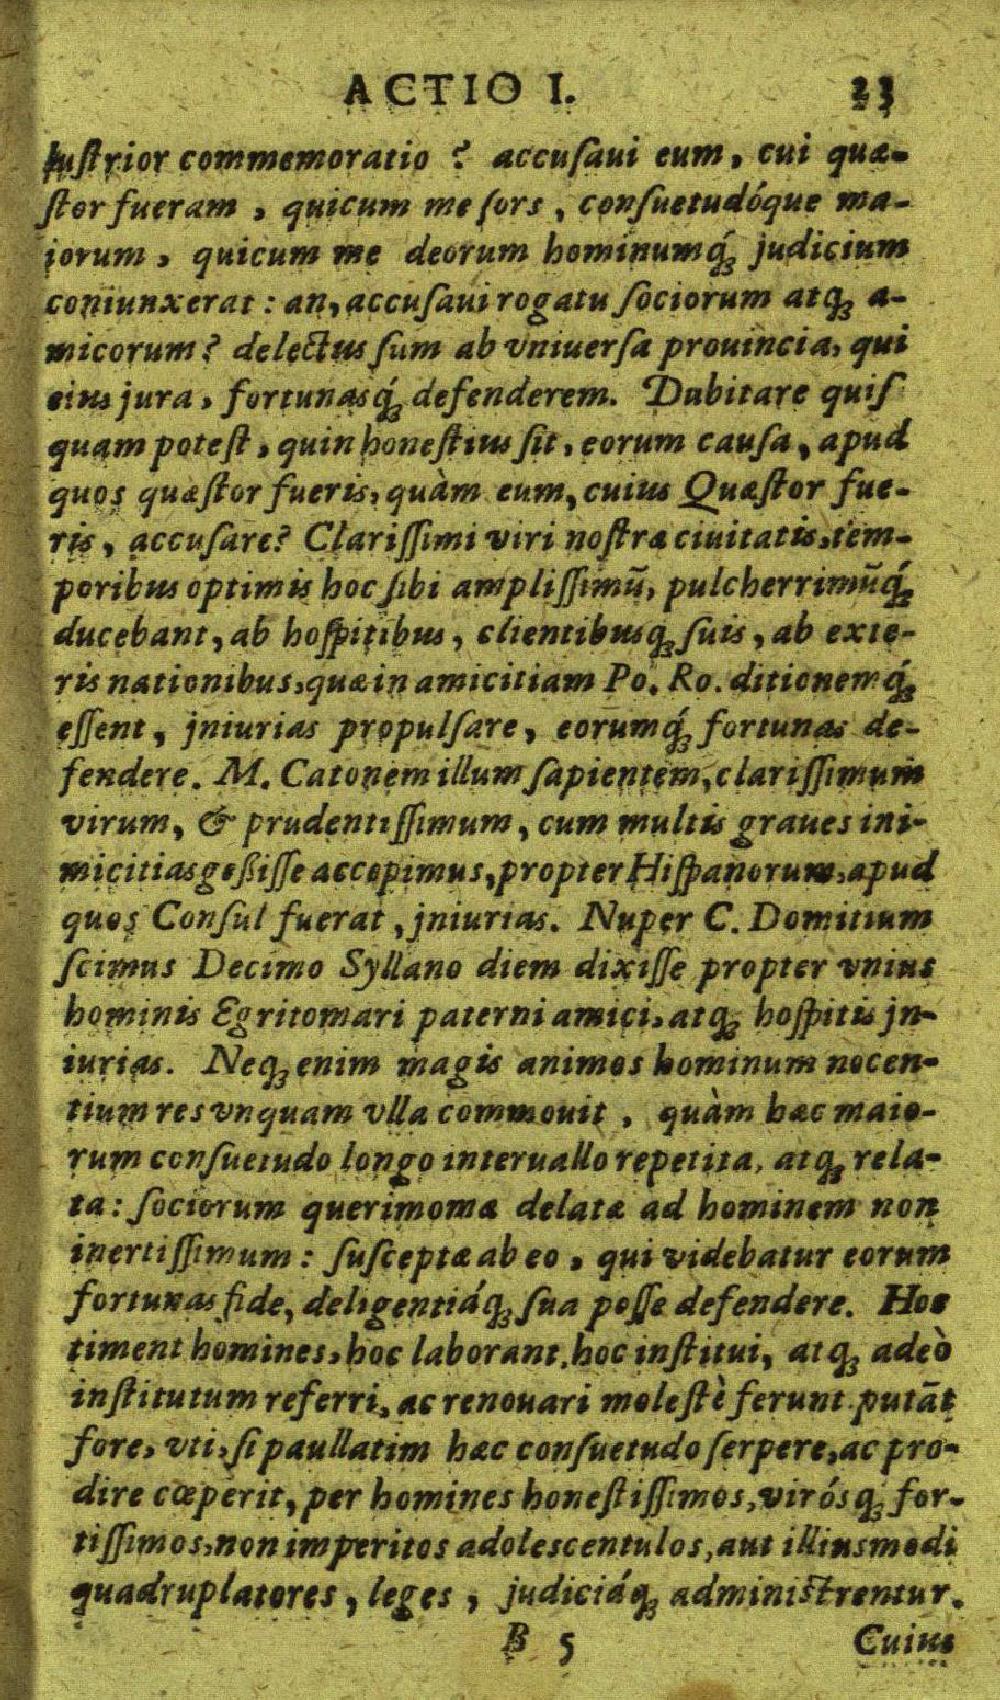 ACTIO I. 23
lustrior commemoratio ? accusaui eum, cui quæ-
stor fueram, quicum me sors, consuetudóque ma-
iorum, quicum me deorum hominumq́; judicium
coniunxerat: an, accusaui rogatu sociorum atq; a-
micorum? delectus sum ab vniuersa prouincia, qui
eius jura, fortunasq́; defenderem. Dubitare quis
quam potest, quin honestius sit, eorum causa, apud
quos quæstor fueris, quàm eum, cuius Quæstor fue-
ris, accusare? Clarissimi viri nostræ ciuitatis, tem-
poribus optimis hoc sibi amplissimū, pulcherrimūq́;
ducebant, ab hospitibus, clientibusq; suis, ab exte-
ris nationibus, quæ in amicitiam Po. Ro. ditionemq́;
essent, jniurias propulsare, eorumq́; fortunas de-
fendere. M. Catonem illum sapientem, clarissimum
virum, & prudentissimum, cum multis graues ini-
micitias geßisse accepimus, propter Hispanorum, apud
quos Consul fuerat, jniurias. Nuper C. Domitium
scimus Decimo Syllano diem dixisse propter vnius
hominis Egritomari paterni amici, atq; hospitis jn-
iurias. Neq; enim magis animos hominum nocen-
tium res vnquam vlla commouit, quàm hæc maio-
rum consuetudo longo interuallo repetita, atq; rela-
ta: sociorum querimomæ delatæ ad hominem non
inertissimum: susceptæ ab eo, qui videbatur eorum
fortunas fide, deligentiáq; sua posse defendere. Hoc
timent homines, hoc laborant, hoc institui, atq; adeò
institutum referri, ac renouari molestè ferunt putāt
fore, vti, si paullatim hæc consuetudo serpere, ac pro-
dire cœperit, per homines honestissimos, virósq; for-
tissimos, non imperitos adolescentulos, aut illiusmodi
quadruplatores, leges, judiciáq; administrentur.
B 5 Cuius